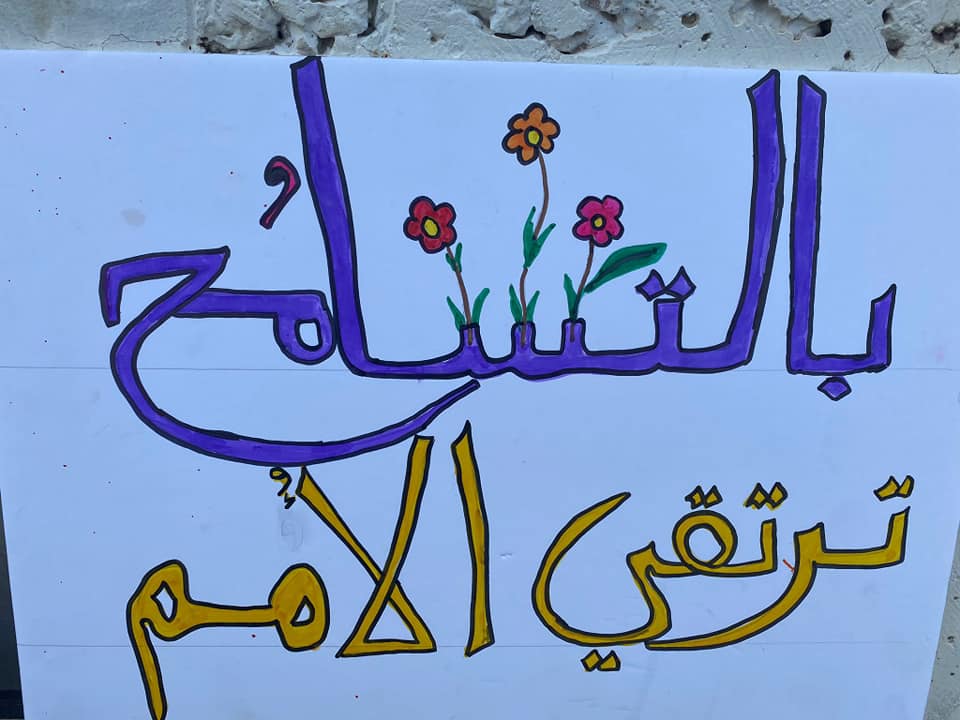 بالتسامُح
ترتقي الأُمم